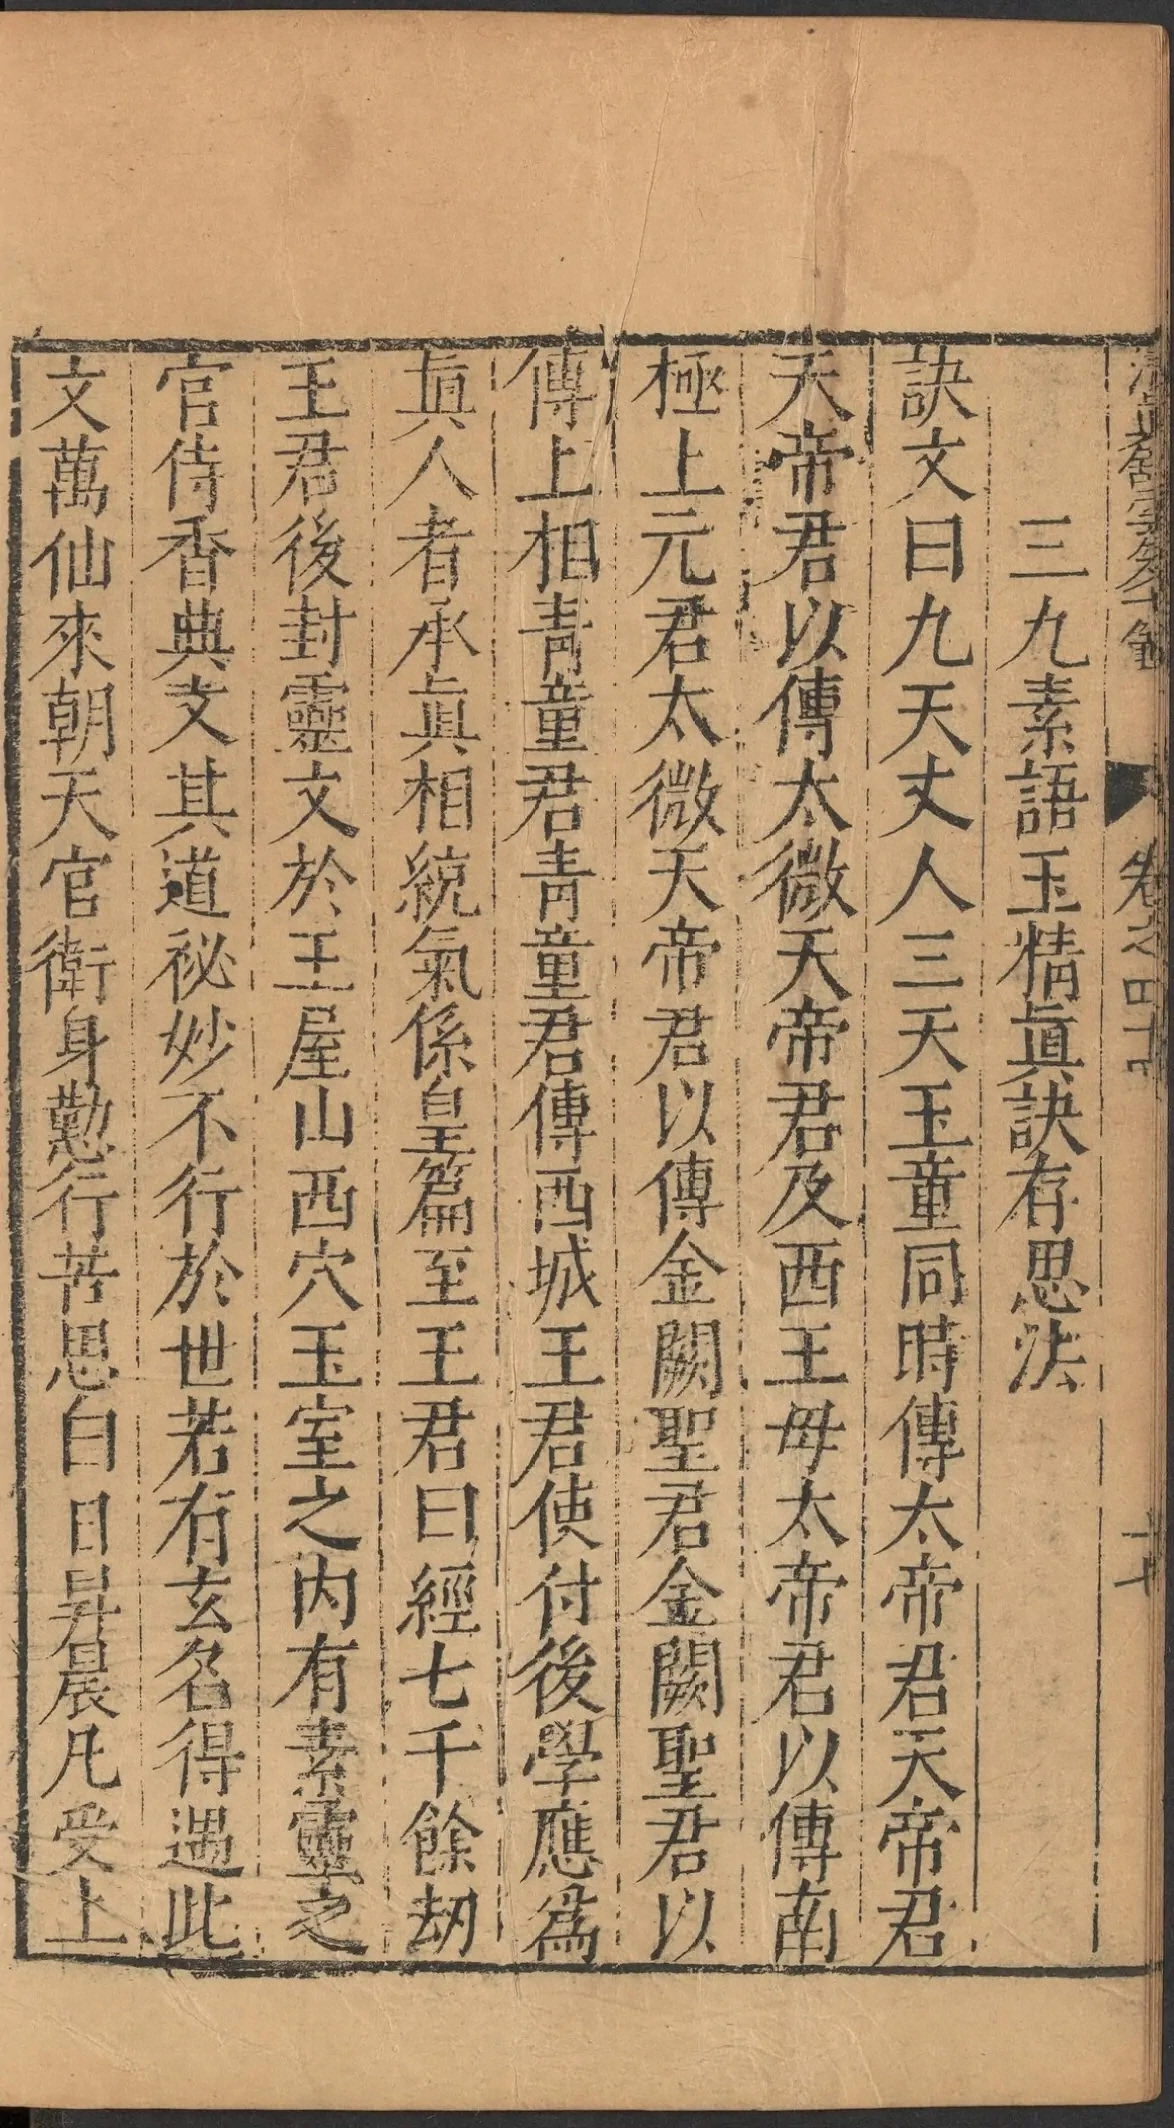 卷之四十
三九素語玉精眞訣存思法
訣文曰九天丈人三天玉童同時傳太帝君天帝君
天帝君以傳太微天帝君及西王母太帝君以傳南
極上元君太微天帝君以傳金闕聖君金闕聖君以
傳上相青童君青童君傳西城王君使付後學應爲
眞人者承眞相統氣係皇篇至王君曰經七千餘劫
王君後封靈文於王屋山西穴玉室之内有素靈之
官侍香典文其道祕妙不行於世若有玄名得遇此
文萬仙來朝天官衛身懃行苦思白日昇晨凡受上